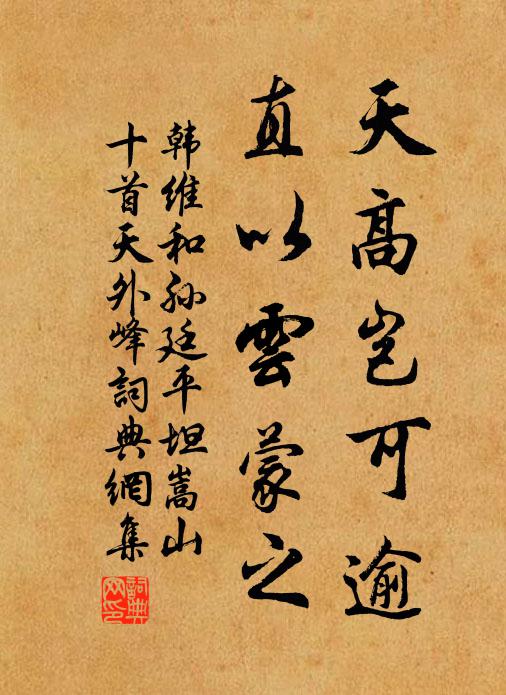 天高岂可逾
直以雲蒙之
韩维和孙廷平坦嵩山
十首天外峰詞典網集
詞典网印